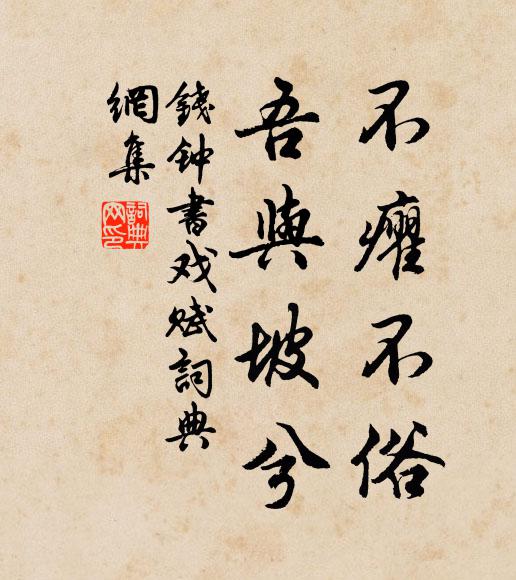 不癯不俗
吾與坡兮
錢钟書戏赋詞典
網集
詞典
网印